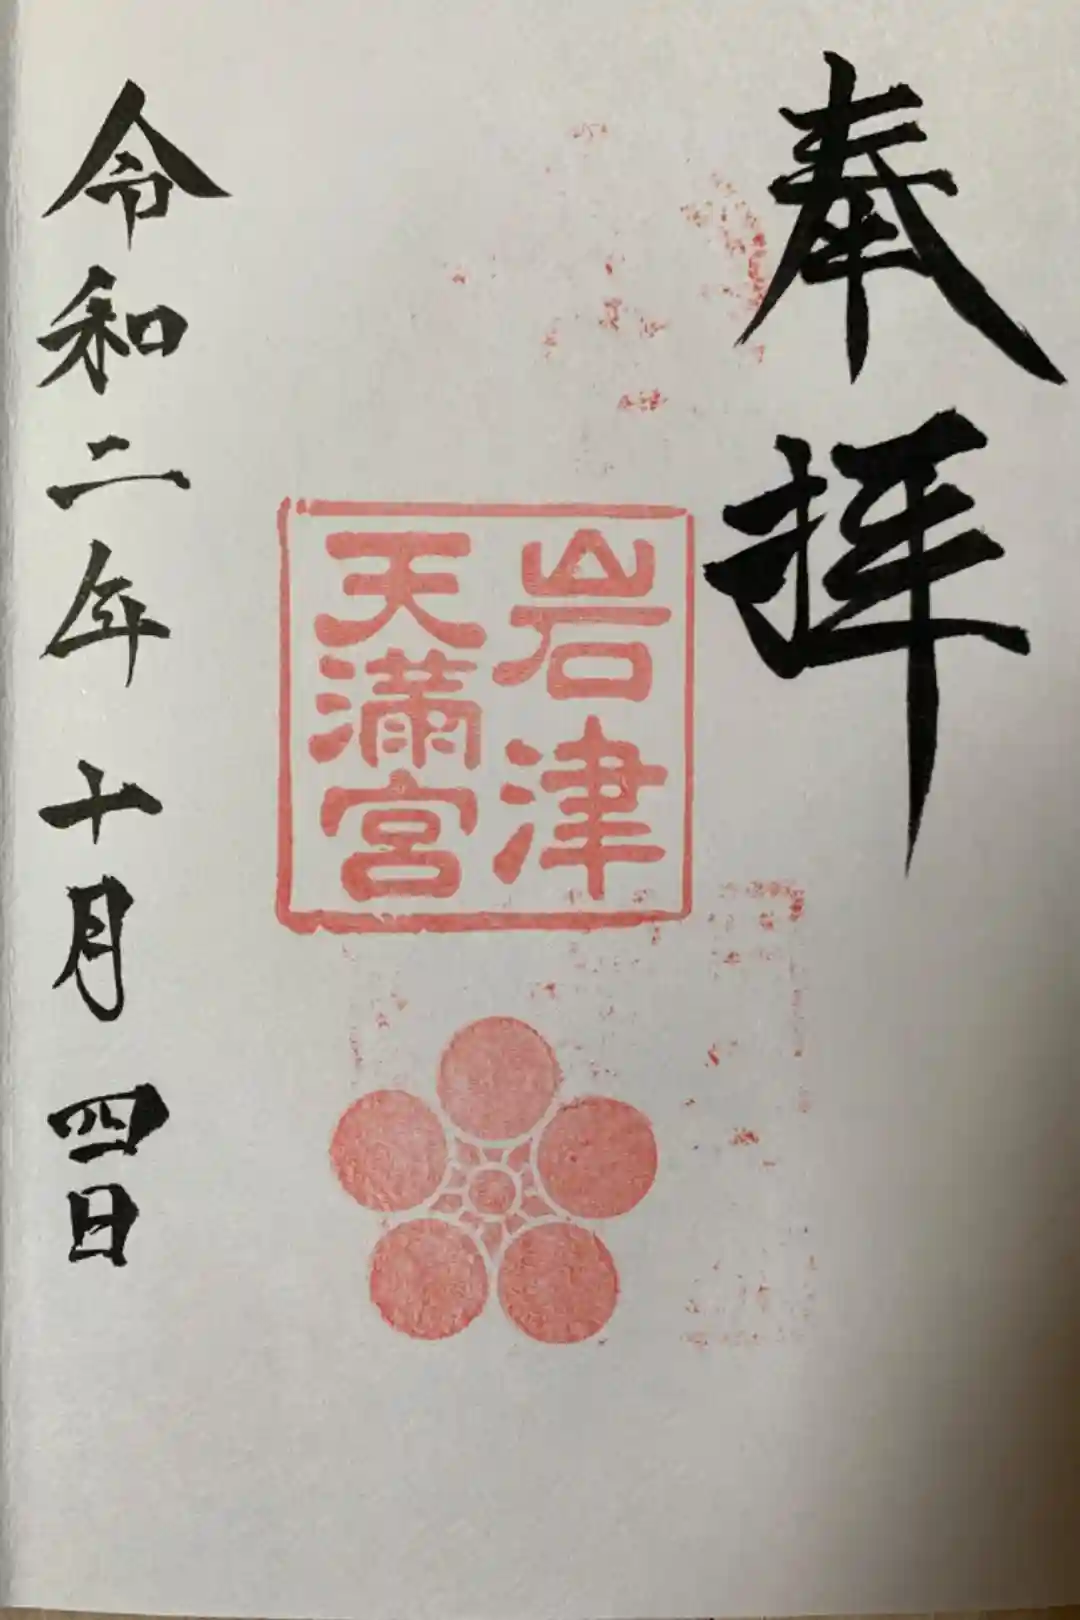 奉拝
岩津
天満宮
令和二年十月四日